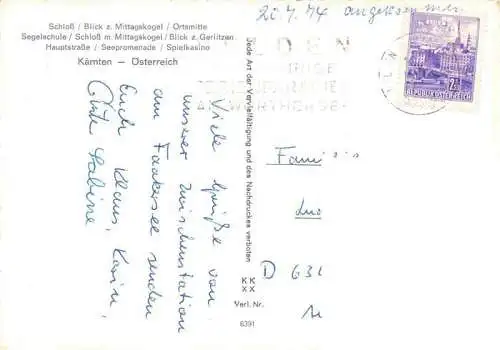 Schloß / Blick z. Mittagskogel / Ortsmitte
Segelschule / Schloß m. Mittagskogel / Blick v. Gerlitzen
Hauptstraße / Seepromenade / Spielkasino
Kärnten – Österreich
Viele Grüße von
unserer Zwischenstation
am Faakersee senden
Euch Klaus, Karin,
Sabine
Jede Art der Vervielfältigung und des Nachdruckes verboten
KK
XX
Verl. Nr.
6391
21.7.74 angekommen
VELDEN
2.50
REPUBLIK ÖSTERREICH
Fami
D 631